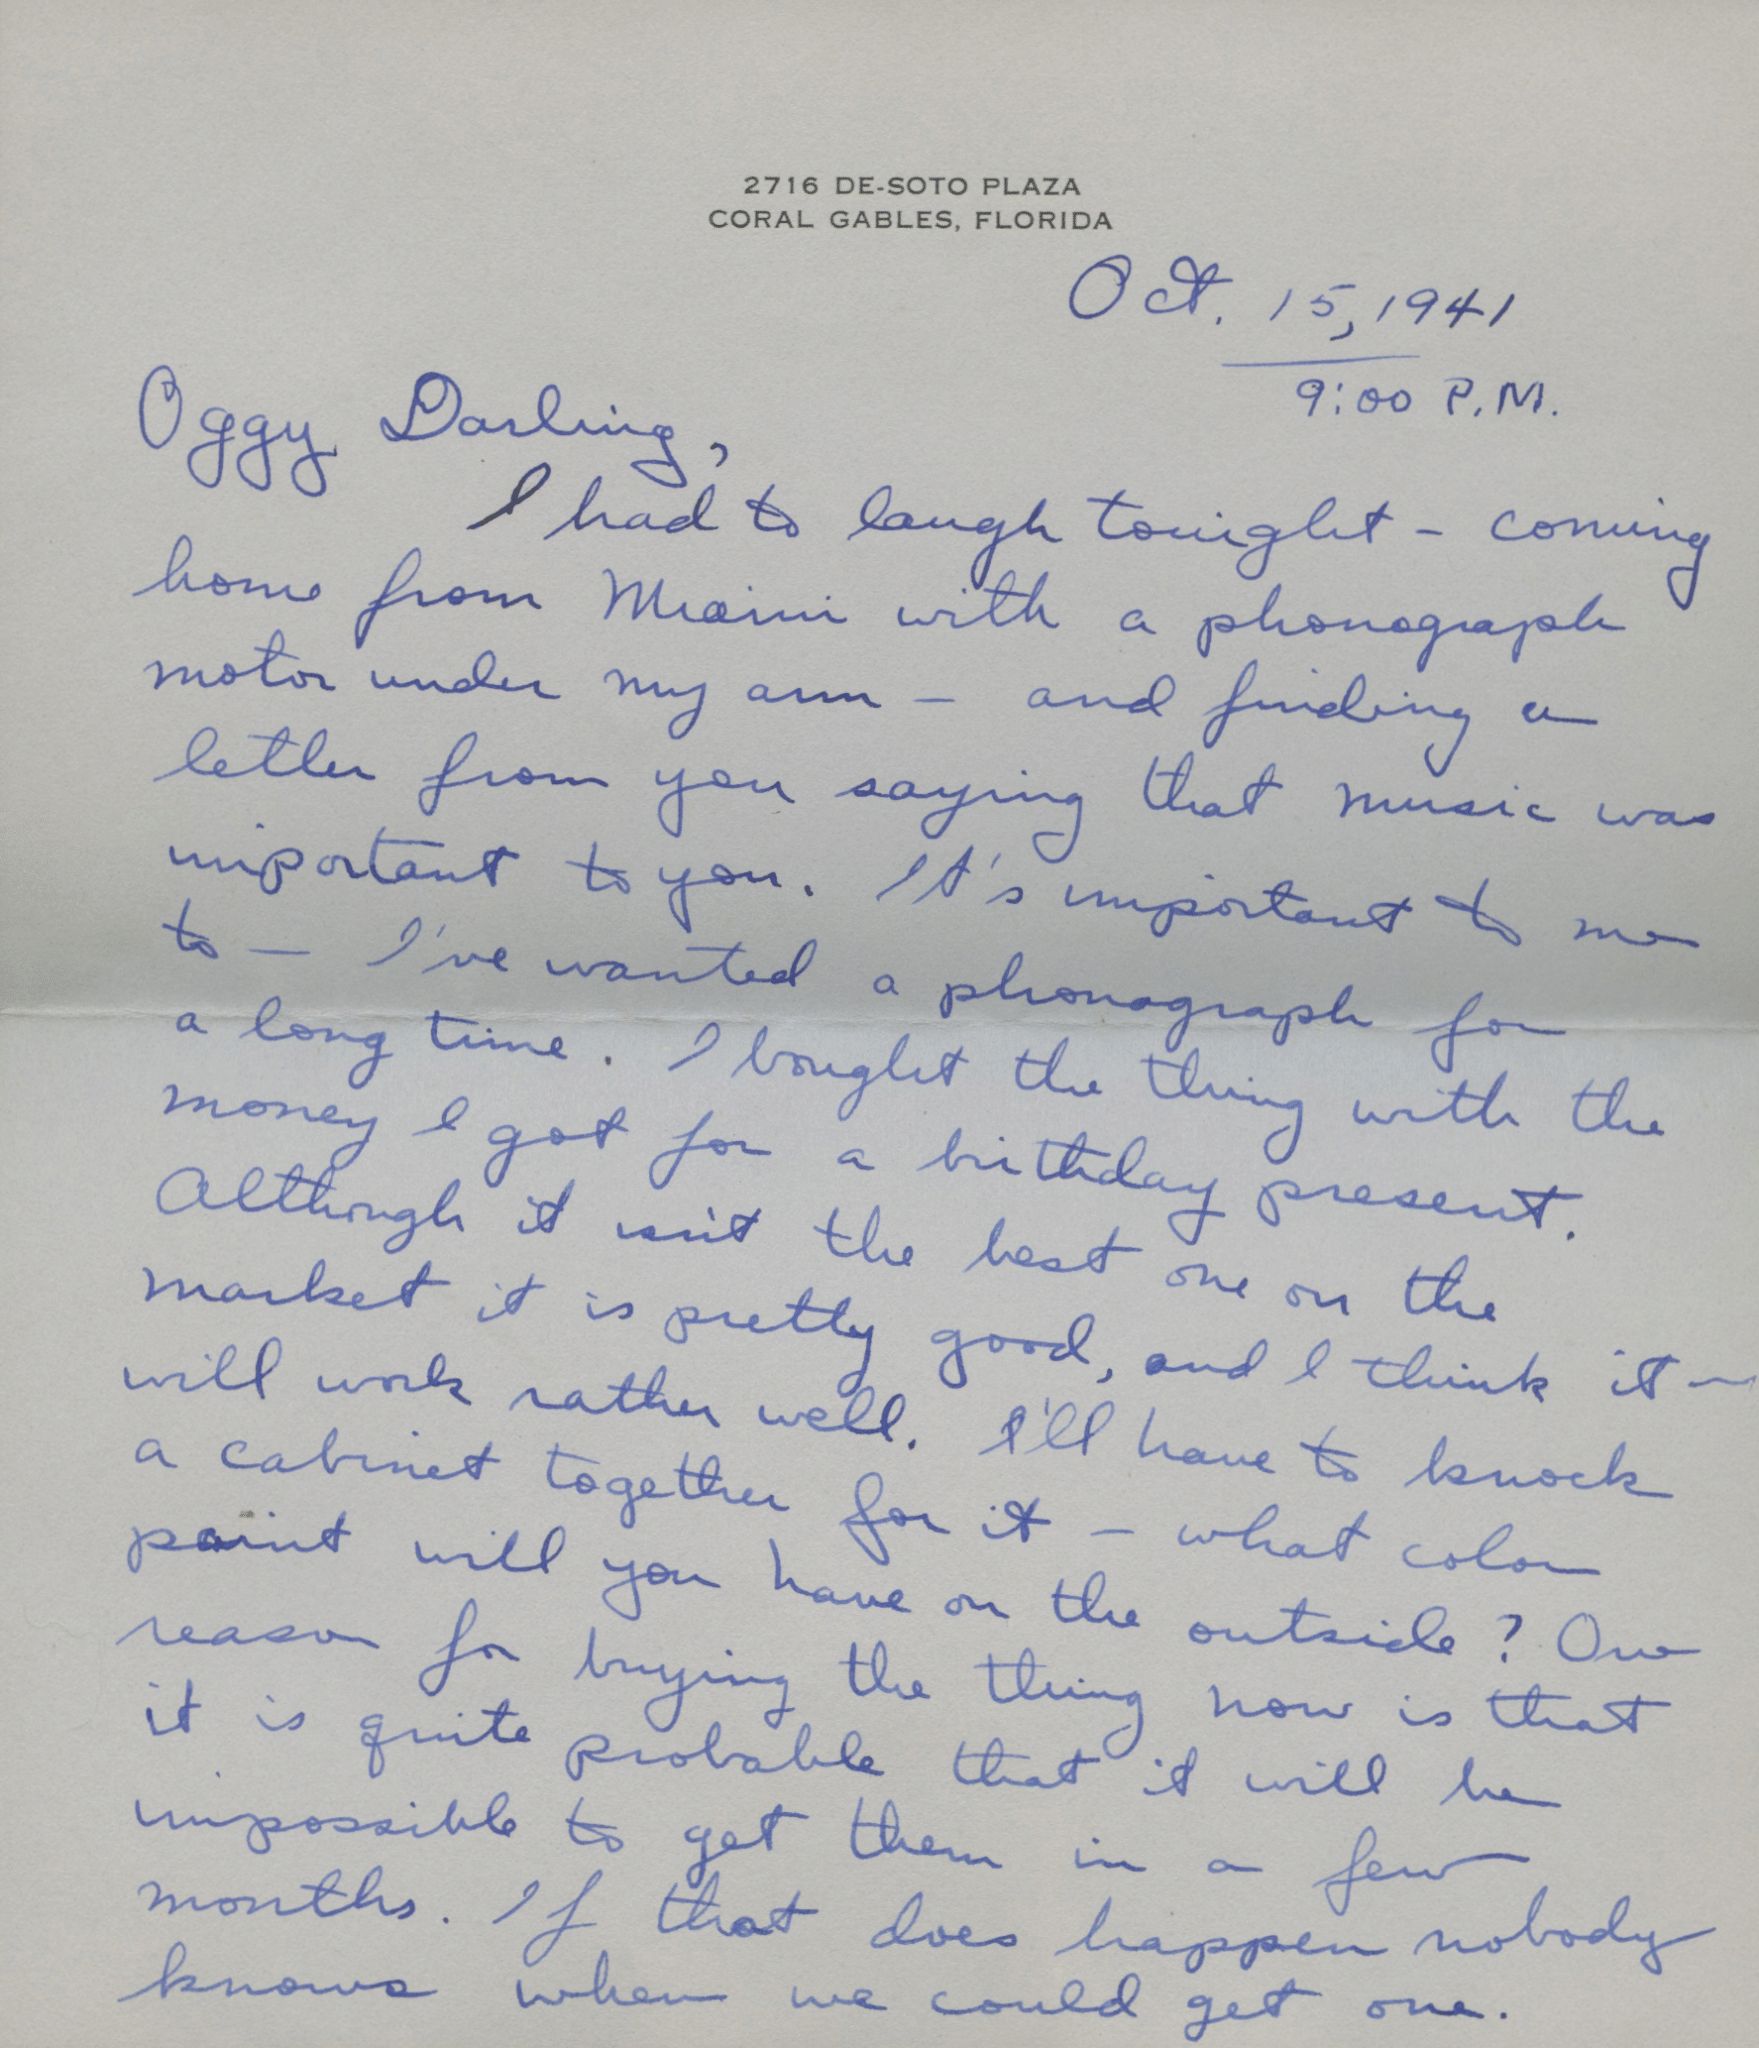 2716 DE-SOTO PLAZA
CORAL GABLES, FLORIDA
Oct. 15, 1941
9:00 P.M.
Oggy Darling,
I had to laugh tonight – coming
home from Miami with a phonograph
motor under my arm – and finding a
letter from you saying that music was
important to you. It's important to me
to – I've wanted a phonograph for
a long time. I bought the thing with the
money I got for a birthday present.
Although it isn't the best one on the
market it is pretty good, and I think it –
will work rather well. I'll have to knock
a cabinet together for it – what color
paint will you have on the outside? One
reason for buying the thing now is that
it is quite probable that it will be
impossible to get them in a few
months. If that does happen nobody
knows when we could get one.